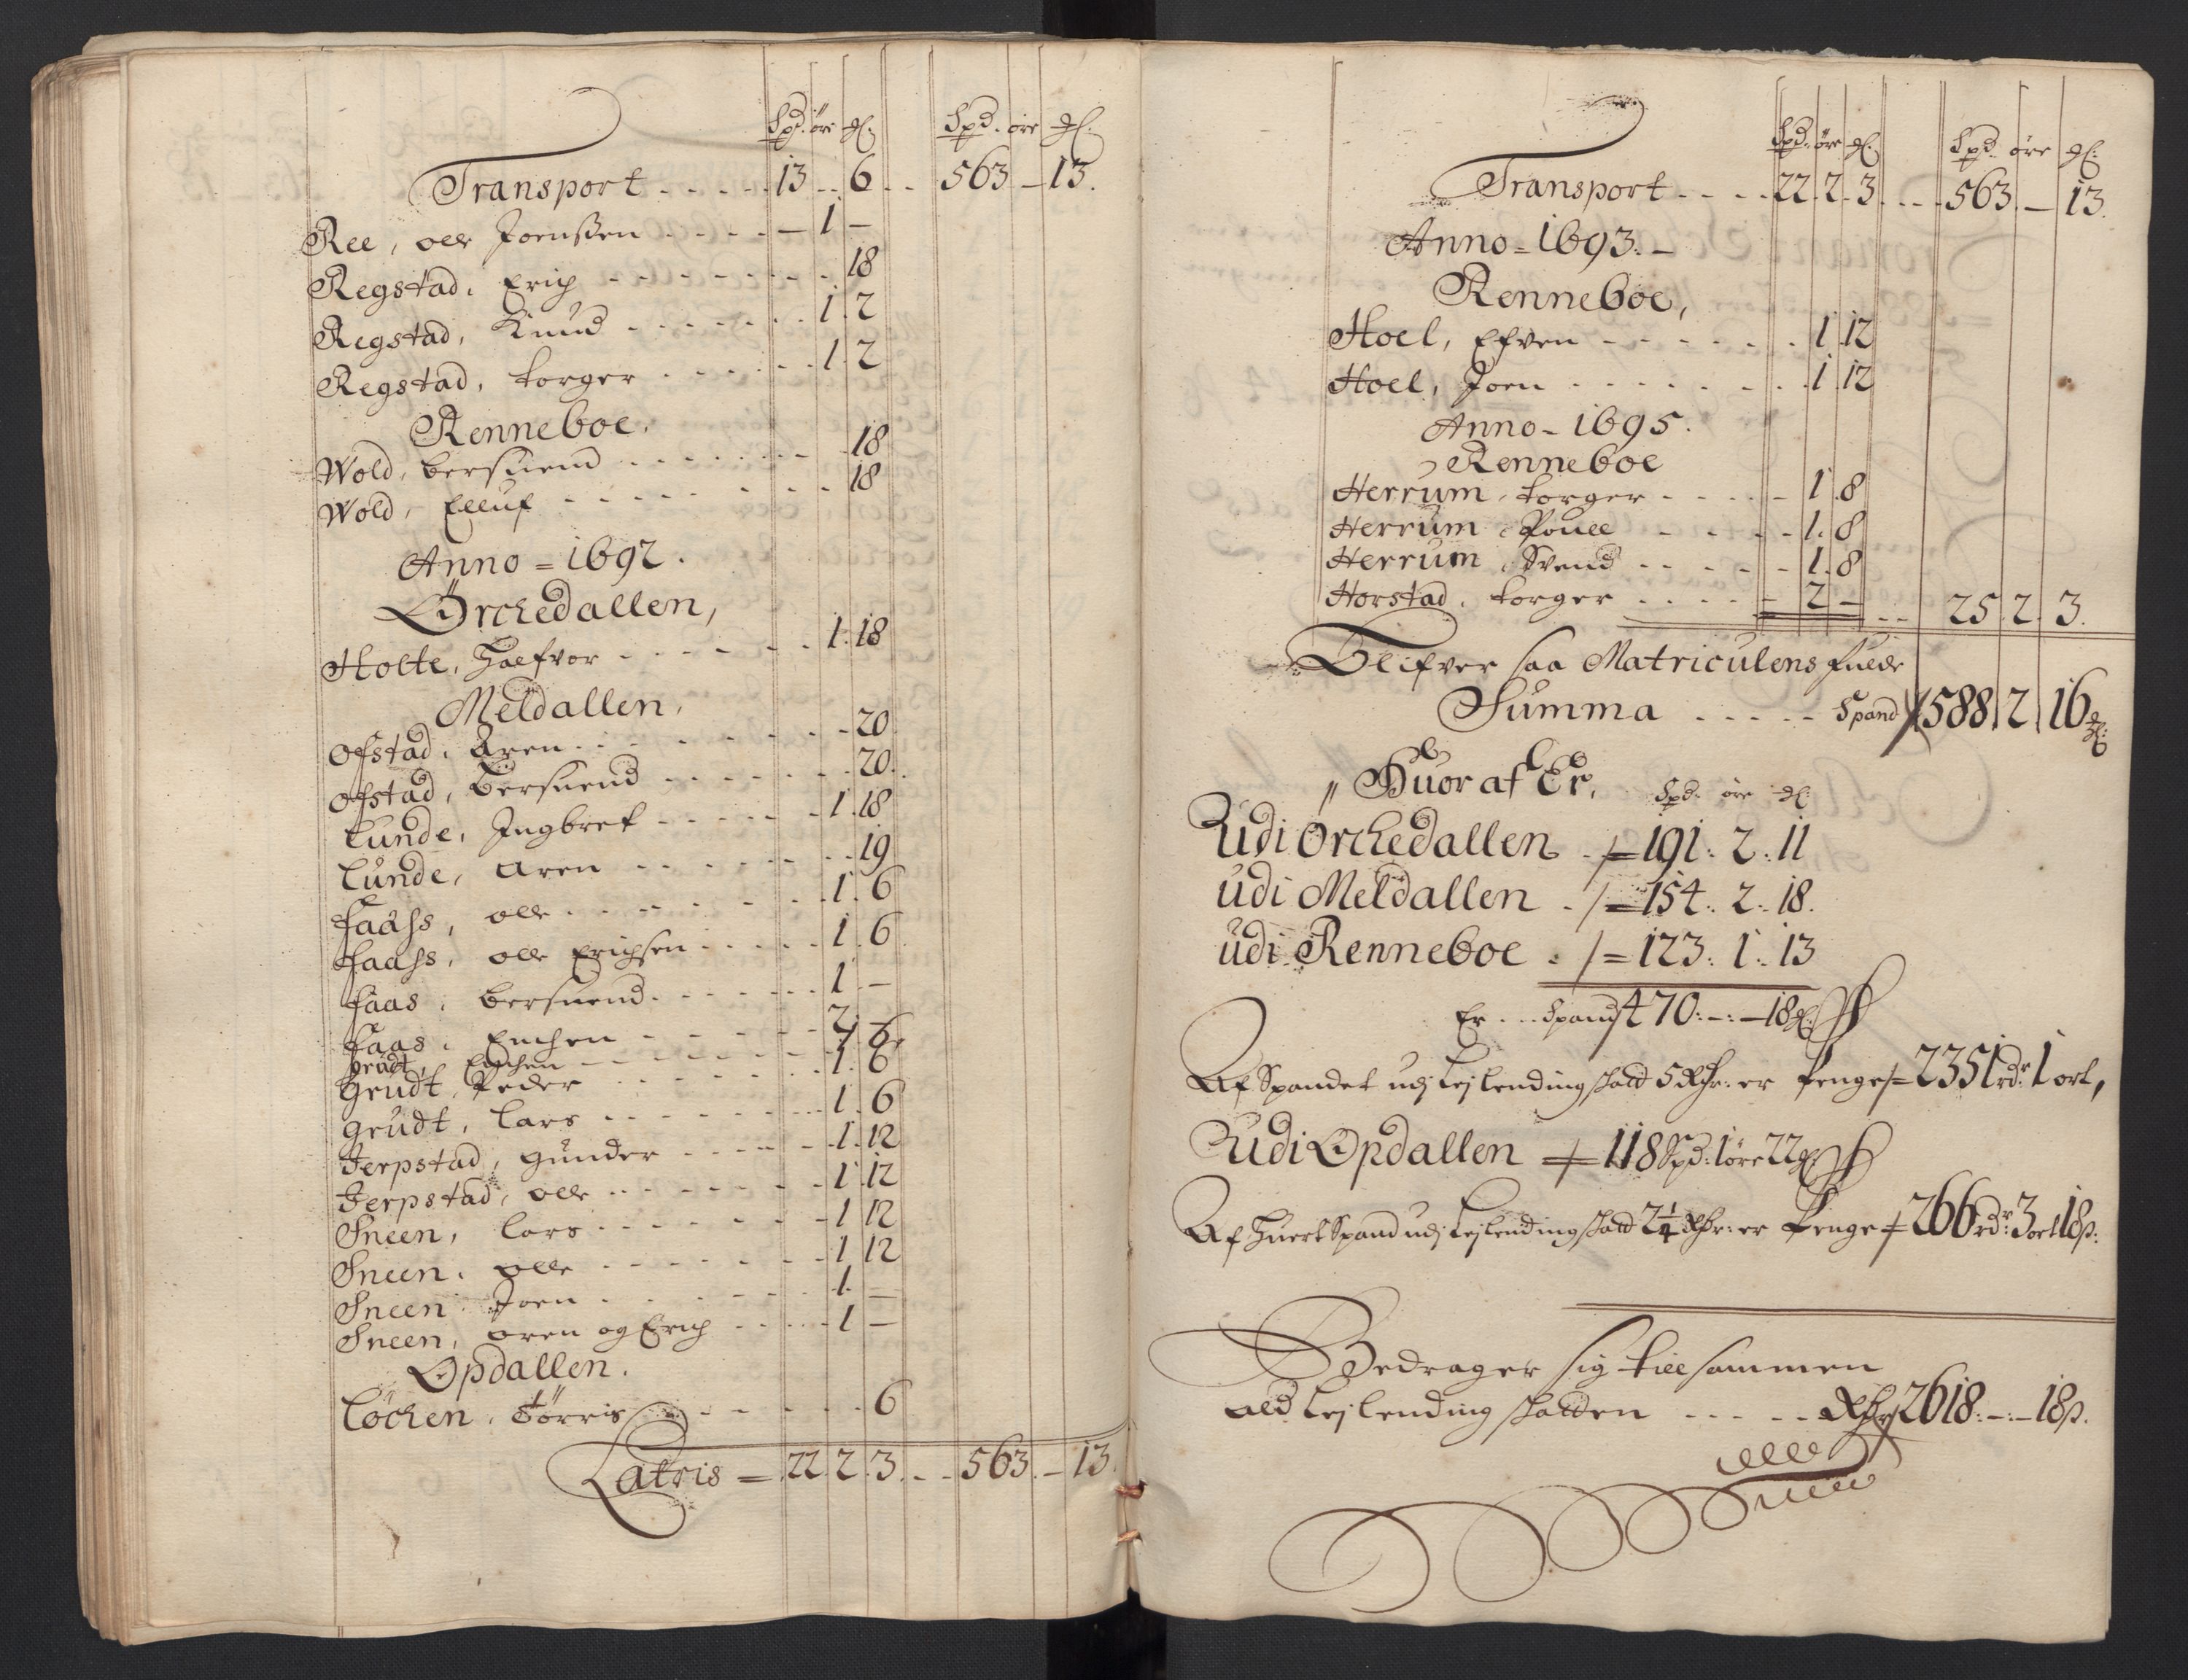 Spd. øre gl. Spd. øre gl.
Transport - - - - - 13 - - 6 - - 563 - 13.
Ree, olle Joenssen - - - - 1 -
Regstad, Erich - - - - - - - - 18
Regstad, Knud - - - - - - - 1. 2
Regstad, torger - - - - - - 1. 2
Renneboe.
Wold, bersuend - - - - - - - 18
Wold, Elluf - - - - - - - - 18
Anno = 1692.
Ørchedallen,
Holte, Halfvor - - - - - - 1. 18
Meldallen,
Ofstad, Aren - - - - - - - 20
Ofstad, Bersuend - - - - - - 20.
Lunde, Ingbret - - - - - - 1. 18
Lunde, Aren - - - - - - - 19
Faass, olle - - - - - - - 1. 6
Faass, olle Erichsen - - - - - 1. 6
Faas, bersuend - - - - - - 1 -
Faas, Enchen - - - - - 2. -
grudt, Enchen - - - - - - 1. 6
Grudt, Peder - - - - - - 1. 6
Grudt, Lars - - - - - - 1. 6
Jerpstad, gunder - - - - - 1. 12
Jerpstad, olle - - - - - - - 1. 12
Sneen, Lars - - - - - - - 1 12
Sneen, olle - - - - - - - 1 12
Sneen Joen - - - - - - - 1. -
Sneen, oren og Erich - - - - - 1 -
Opdallen.
Løchen, Tørris - - - - - - 6
Latris = 22. 2. 3. - - 563. - 13.
Spd. øre gl. Spd. øre gl.
Transport - - - - 22. 2. 3. - - - 563. - 13.
Anno = 1693. -
Renneboe,
Hoel, Efven - - - - - - - 1 12
Hoel, Joen - - - - - - - - 1 12
Anno - 1695.
Renneboe
Herrum, torger - - - - - 1. 8
Herrum Pouell - - - - - 1. 8
Herrum Svend - - - - - 1. 8
Horstad, torger - - - - - 2 - - - 25. 2. 3.
Blifver saa Matriculens fulde
Summa - - - - - Spand 588. 2. 16 gl:
Huor af Er, Spd. øre gl.
Udi Orchedallen - 191: 2: 11
udi Meldallen - 154: 2: 18.
udi Renneboe - 123: 1: 13
Er - - - Spand 470: - : - 18 gl:
Af Spandet udj Lejlending skatt 5 Rdr: er Penge 2351 rdr 1 ort,
Udi Opdallen 118 Spd: 1 øre 22 gl
Af Huert Spand udj Lejlending skatt 2 1/4 Rdr: er Penge 266 rdr 3 ort 18 s:
Bedrager sig till sammen
ald Lejlending skatten - - - - - Rdr 2618: - : - 18 s.